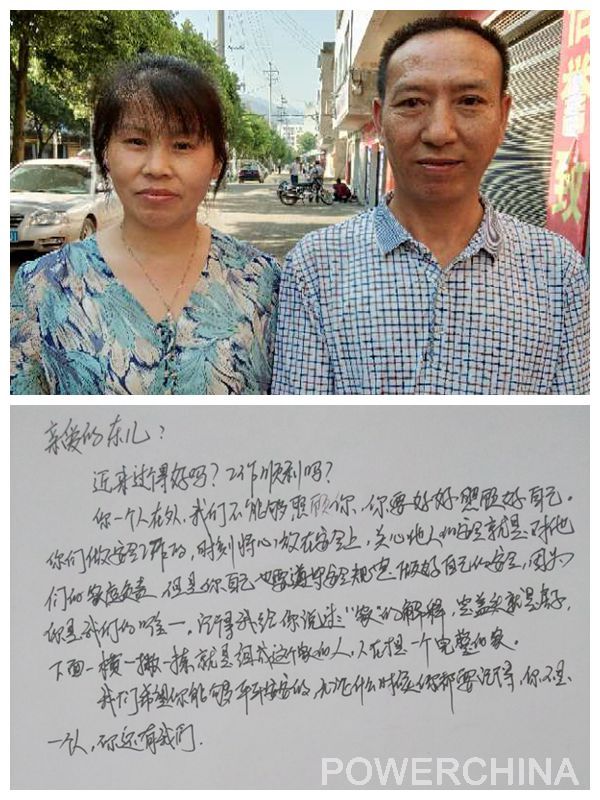 致
亲爱的东儿：
近来过得好吗？工作顺利吗？
你一个人在外，我们不能够照顾你，你要好好照顾好自己。
你们做安全工作的，时刻将心放在安全上，关心他人的安全就是对他
们的家庭负责，但是你自己也要遵守安全规范，做好自己的安全，因为
你是我们的唯一。记得我给你说过"家"的解释，宝盖头就是房子，
下面一横一撇一捺就是组成这个家的人，人在才是一个完整的家。
我们希望你能够平平安安的，无论什么时候你都要记得，你不是
一个人，你还有我们.
POWERCHINA